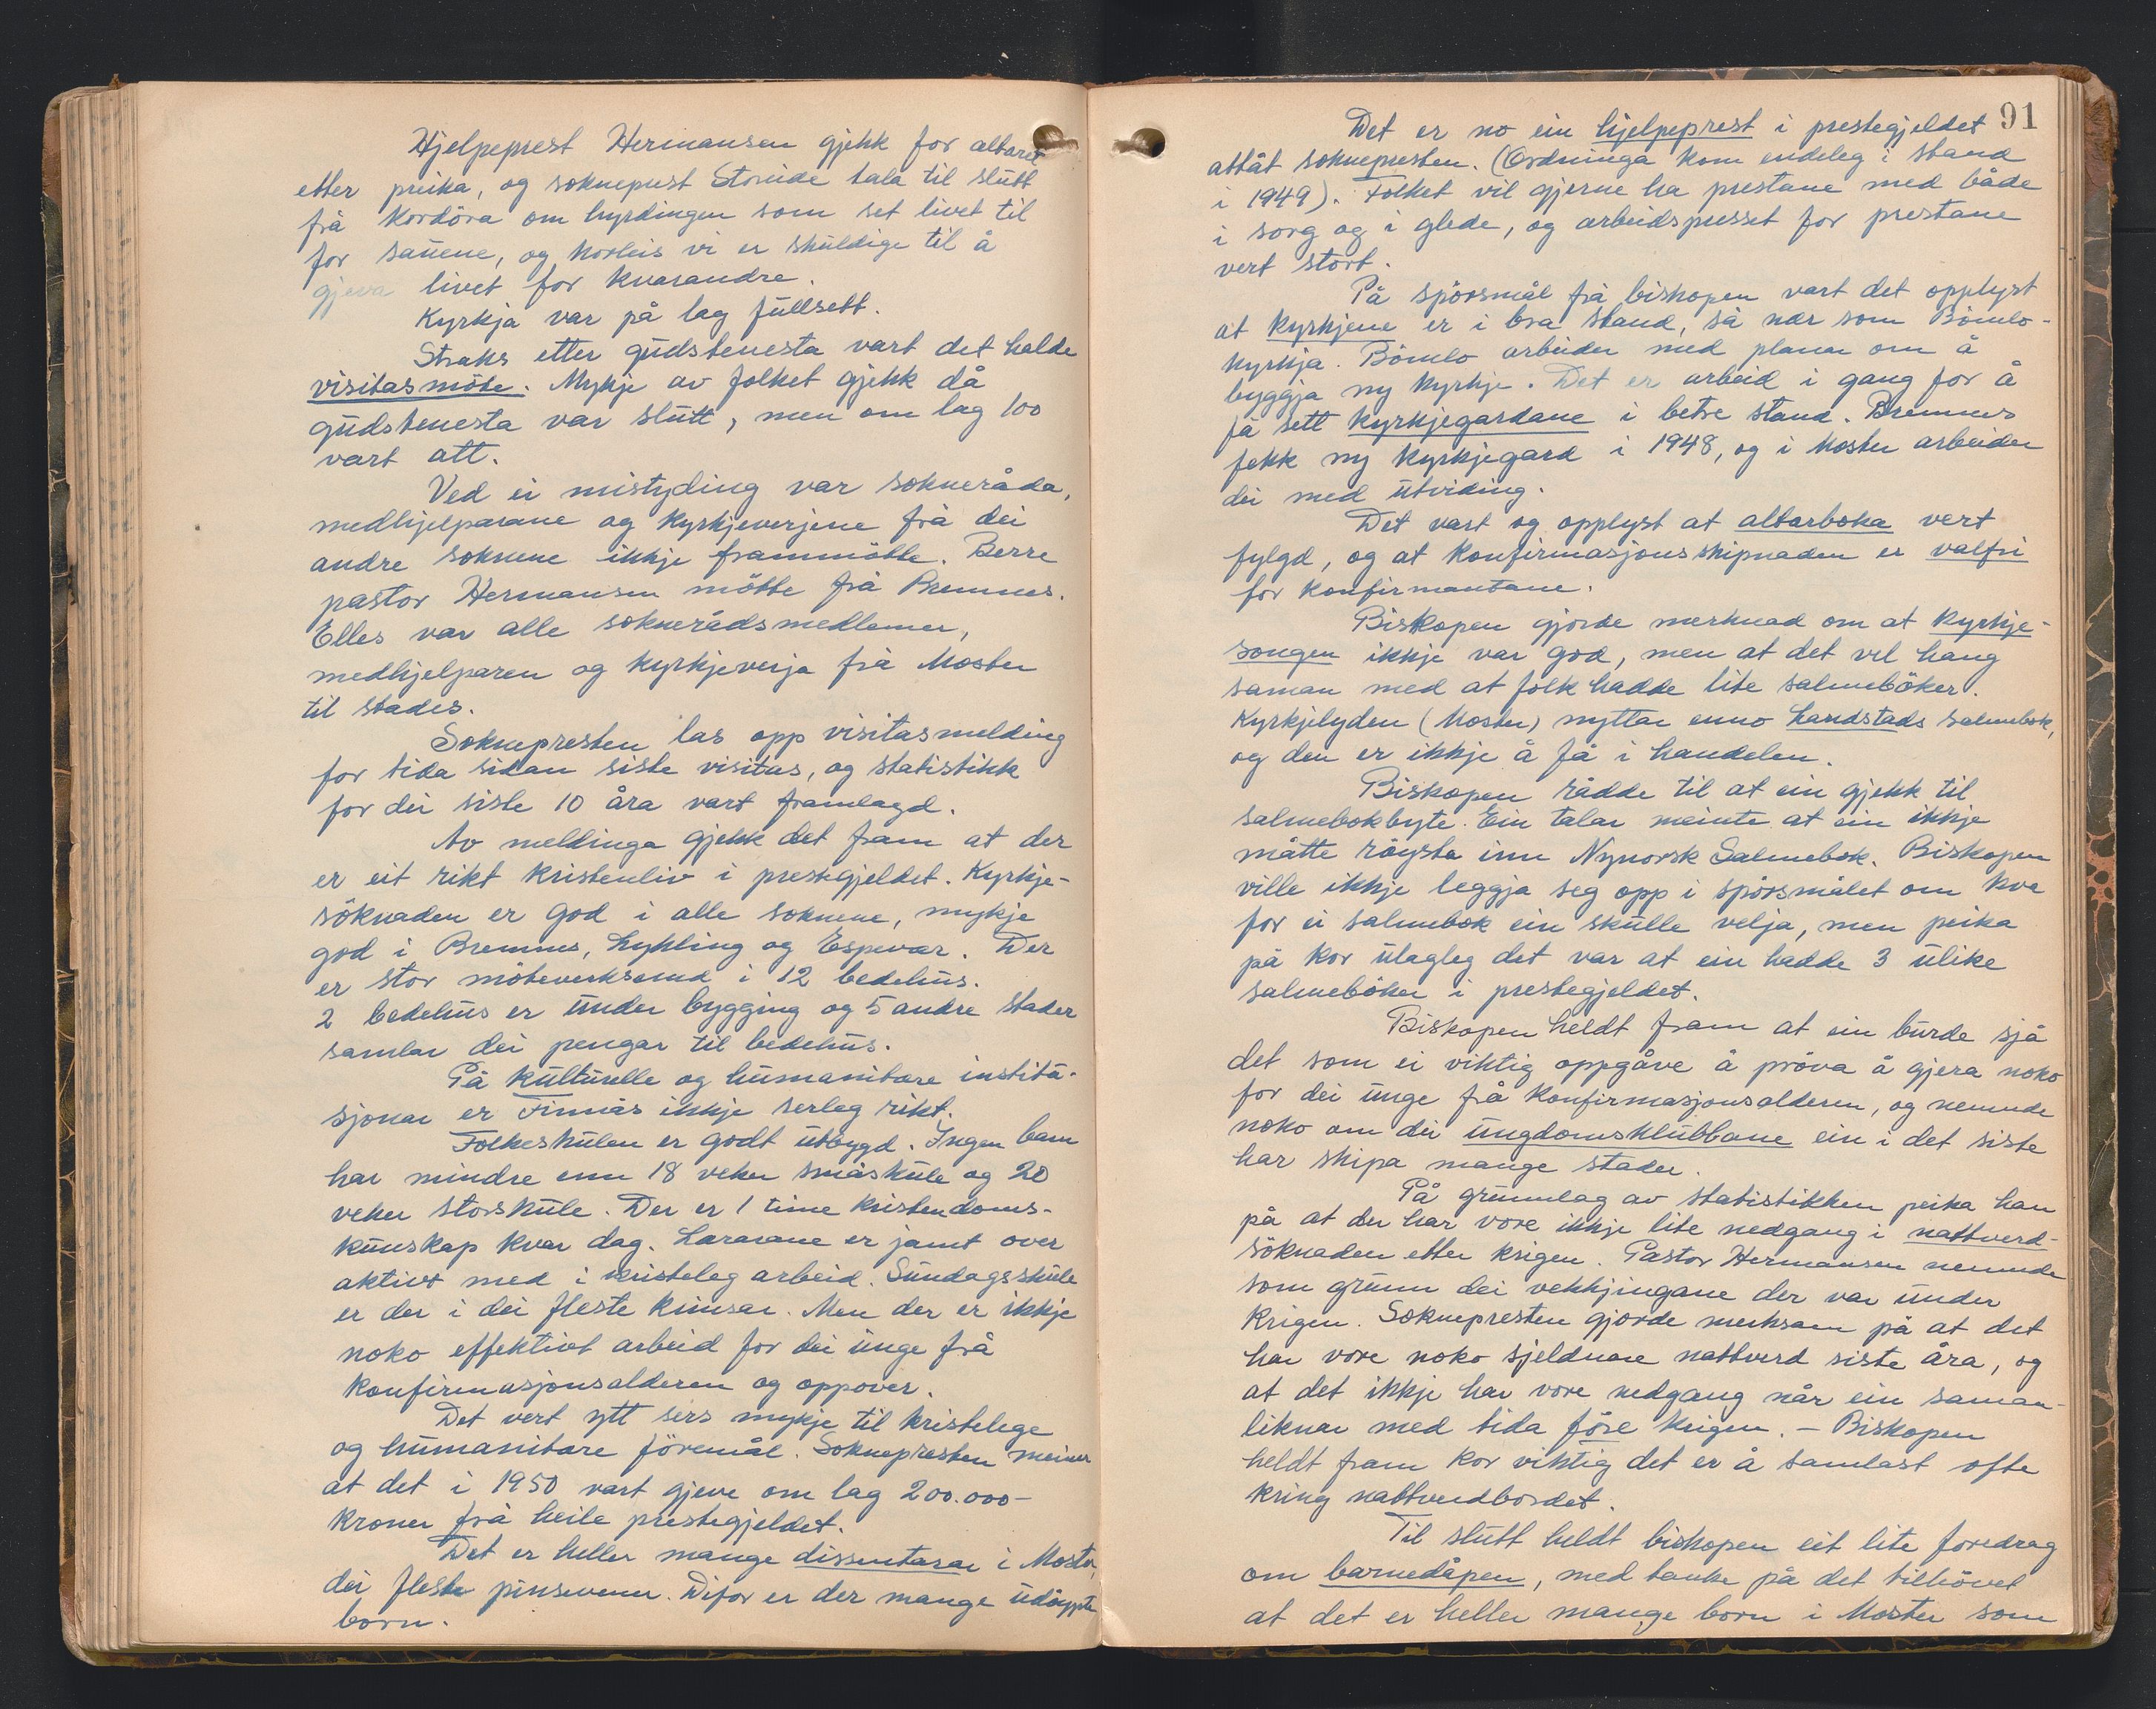 Hjelpeprest Hermansen gjekk for altaret
etter preika, og sokneprest Storeide tala til slutt
frå kordöra om hyrdingen som set livet til
for sauene, og korleis vi er skuldige til å
gjeva livet for kvarandre.
Kyrkja var på lag fullsett.
Straks etter gudstenesta vart det halde
visitasmöte. Mykje av folket gjekk då
gudstenesta var slutt, men om lag 100
vart att.
Ved ei mistyding var sokneråda,
medhjelparane og kyrkjeverjene frå dei
andre soknene ikkje frammötte. Berre
pastor Hermansen mötte frå Bremnes.
Elles var alle soknerådsmedlemer,
medhjelparen og kyrkjeverja frå Moster
til stades.
Soknepresten las opp visitasmelding
for tida sidan siste visitas, og statistikk
for dei siste 10 åra vart framlagd.
Av meldinga gjekk det fram at der
er eit rikt kristenliv i prestegjeldet. Kyrkje-
söknaden er god i alle soknene, mykje
god i Bremnes, Lykling og Espevær. Der
er stor möteverksemd i 12 bedehus.
2 bedehus er under bygging og 5 andre stader
samlar dei pengar til bedehus.
På kulturelle og humanitære institu-
sjonar er Finnås ikkje serleg rikt.
Folkeskulen er godt utbygd. Ingen barn
har mindre enn 18 veker småskule og 20
veker storskule. Der er 1 time kristendoms-
kunskap kvar dag. Lærarane er jamt over
aktivt med i kristeleg arbeid. Sundagsskule
er der i dei fleste krinsar. Men der er ikkje
noko effektivt arbeid for dei unge frå
konfirmasjonsalderen og oppover.
Det vert ytt sers mykje til kristelege
og humanitære föremål. Soknepresten meiner
at det i 1950 vart gjeve om lag 200.000-
kroner frå heile prestegjeldet.
Det er heller mange dissentarar i Moster,
dei fleste pinsevener. Difor er der mange udöypte
born.
91
Det er no ein hjelpeprest i prestegjeldet
attåt soknepresten. (Ordninga kom endeleg i stand
i 1949). Folket vil gjerne ha prestane med både
i sorg og i glede, og arbeidspresset for prestane
vert stort.
På spörsmål frå biskopen vart det opplyst
at kyrkjene er i bra stand, så nær som Bömlo-
kyrkja. Bömlo arbeider med planar om å
byggja ny kyrkje. Det er arbeid i gang for å
få sett kyrkjegardane i betre stand. Bremnes
fekk ny kyrkjegard i 1948, og i Moster arbeider
dei med utviding.
Det vart og opplyst at altarboka vert
fylgd, og at konfirmasjonsskipnaden er valfri
for konfirmantane.
Biskopen gjorde merknad om at kyrkje-
songen ikkje var god, men at det vel hang
saman med at folk hadde lite salmeböker.
Kyrkjelyden (Moster) nyttar enno Landstads salmebok,
og den er ikkje å få i handelen.
Biskopen rådde til at ein gjekk til
salmebokbyte. Ein talar meinte at ein ikkje
måtte röysta inn Nynorsk Salmebok. Biskopen
ville ikkje leggja seg opp i spörsmålet om kva
for ei salmebok ein skulle velja, men peika
på kor ulagleg det var at ein hadde 3 ulike
salmeböker i prestegjeldet.
Biskopen heldt fram at ein burde sjå
det som ei viktig oppgåve å pröva å gjera noko
for dei unge frå konfirmasjonsalderen, og nemnde
noko om dei ungdomsklubbane ein i det siste
har skipa mange stader.
På grunnlag av statistikken peika han
på at der har vore ikkje lite nedgang i nattverd-
söknaden etter krigen. Pastor Hermansen nemnde
som grunn dei vekkjingane der var under
krigen. Soknepresten gjorde merksam på at det
har vore noko sjeldnare nattverd siste åra, og
at det ikkje har vore nedgang når ein saman-
liknar med tida före krigen. - Biskopen
heldt fram kor viktig det er å samlast ofte
kring nattverdbordet.
Til slutt heldt biskopen eit lite foredrag
om barnedåpen, med tanke på det tilhövet
at det er heller mange born i Moster som